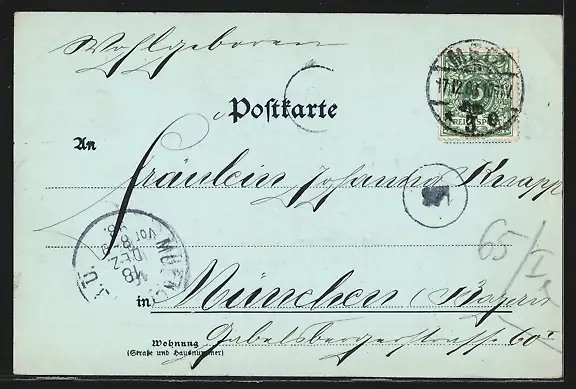 Wohlgeboren
Postkarte
An
Fräulein Johanna Knapp
in München (Bayern
Wohnung
(Straße und Hausnummer)
Gabelsbergerstrasse 60 I
65/I